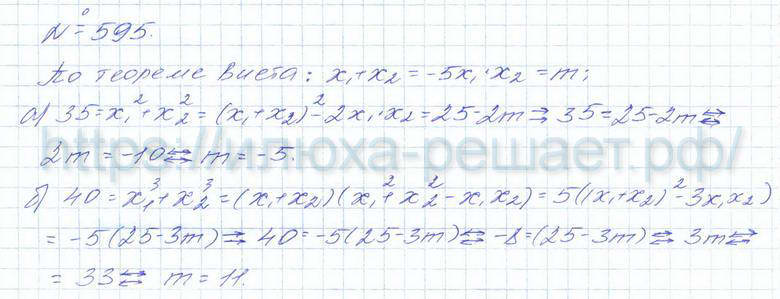 № 595.
По теореме Виета: x₁+x₂ = -5x₁·x₂ = m;
а) 35=x₁²+x₂²=(x₁+x₂)²-2x₁·x₂=25-2m ⇒ 35=25-2m ⇔
https://илюха-решает.рф/
2m = -10 ⇔ m = -5.
б) 40 = x₁³+x₂³=(x₁+x₂)(x₁²+x₂²-x₁x₂)=5((x₁+x₂)²-3x₁x₂)
= -5(25-3m) ⇒ 40=-5(25-3m) ⇔ -8=(25-3m) ⇔ 3m ⇔
= 33 ⇔ m = 11.